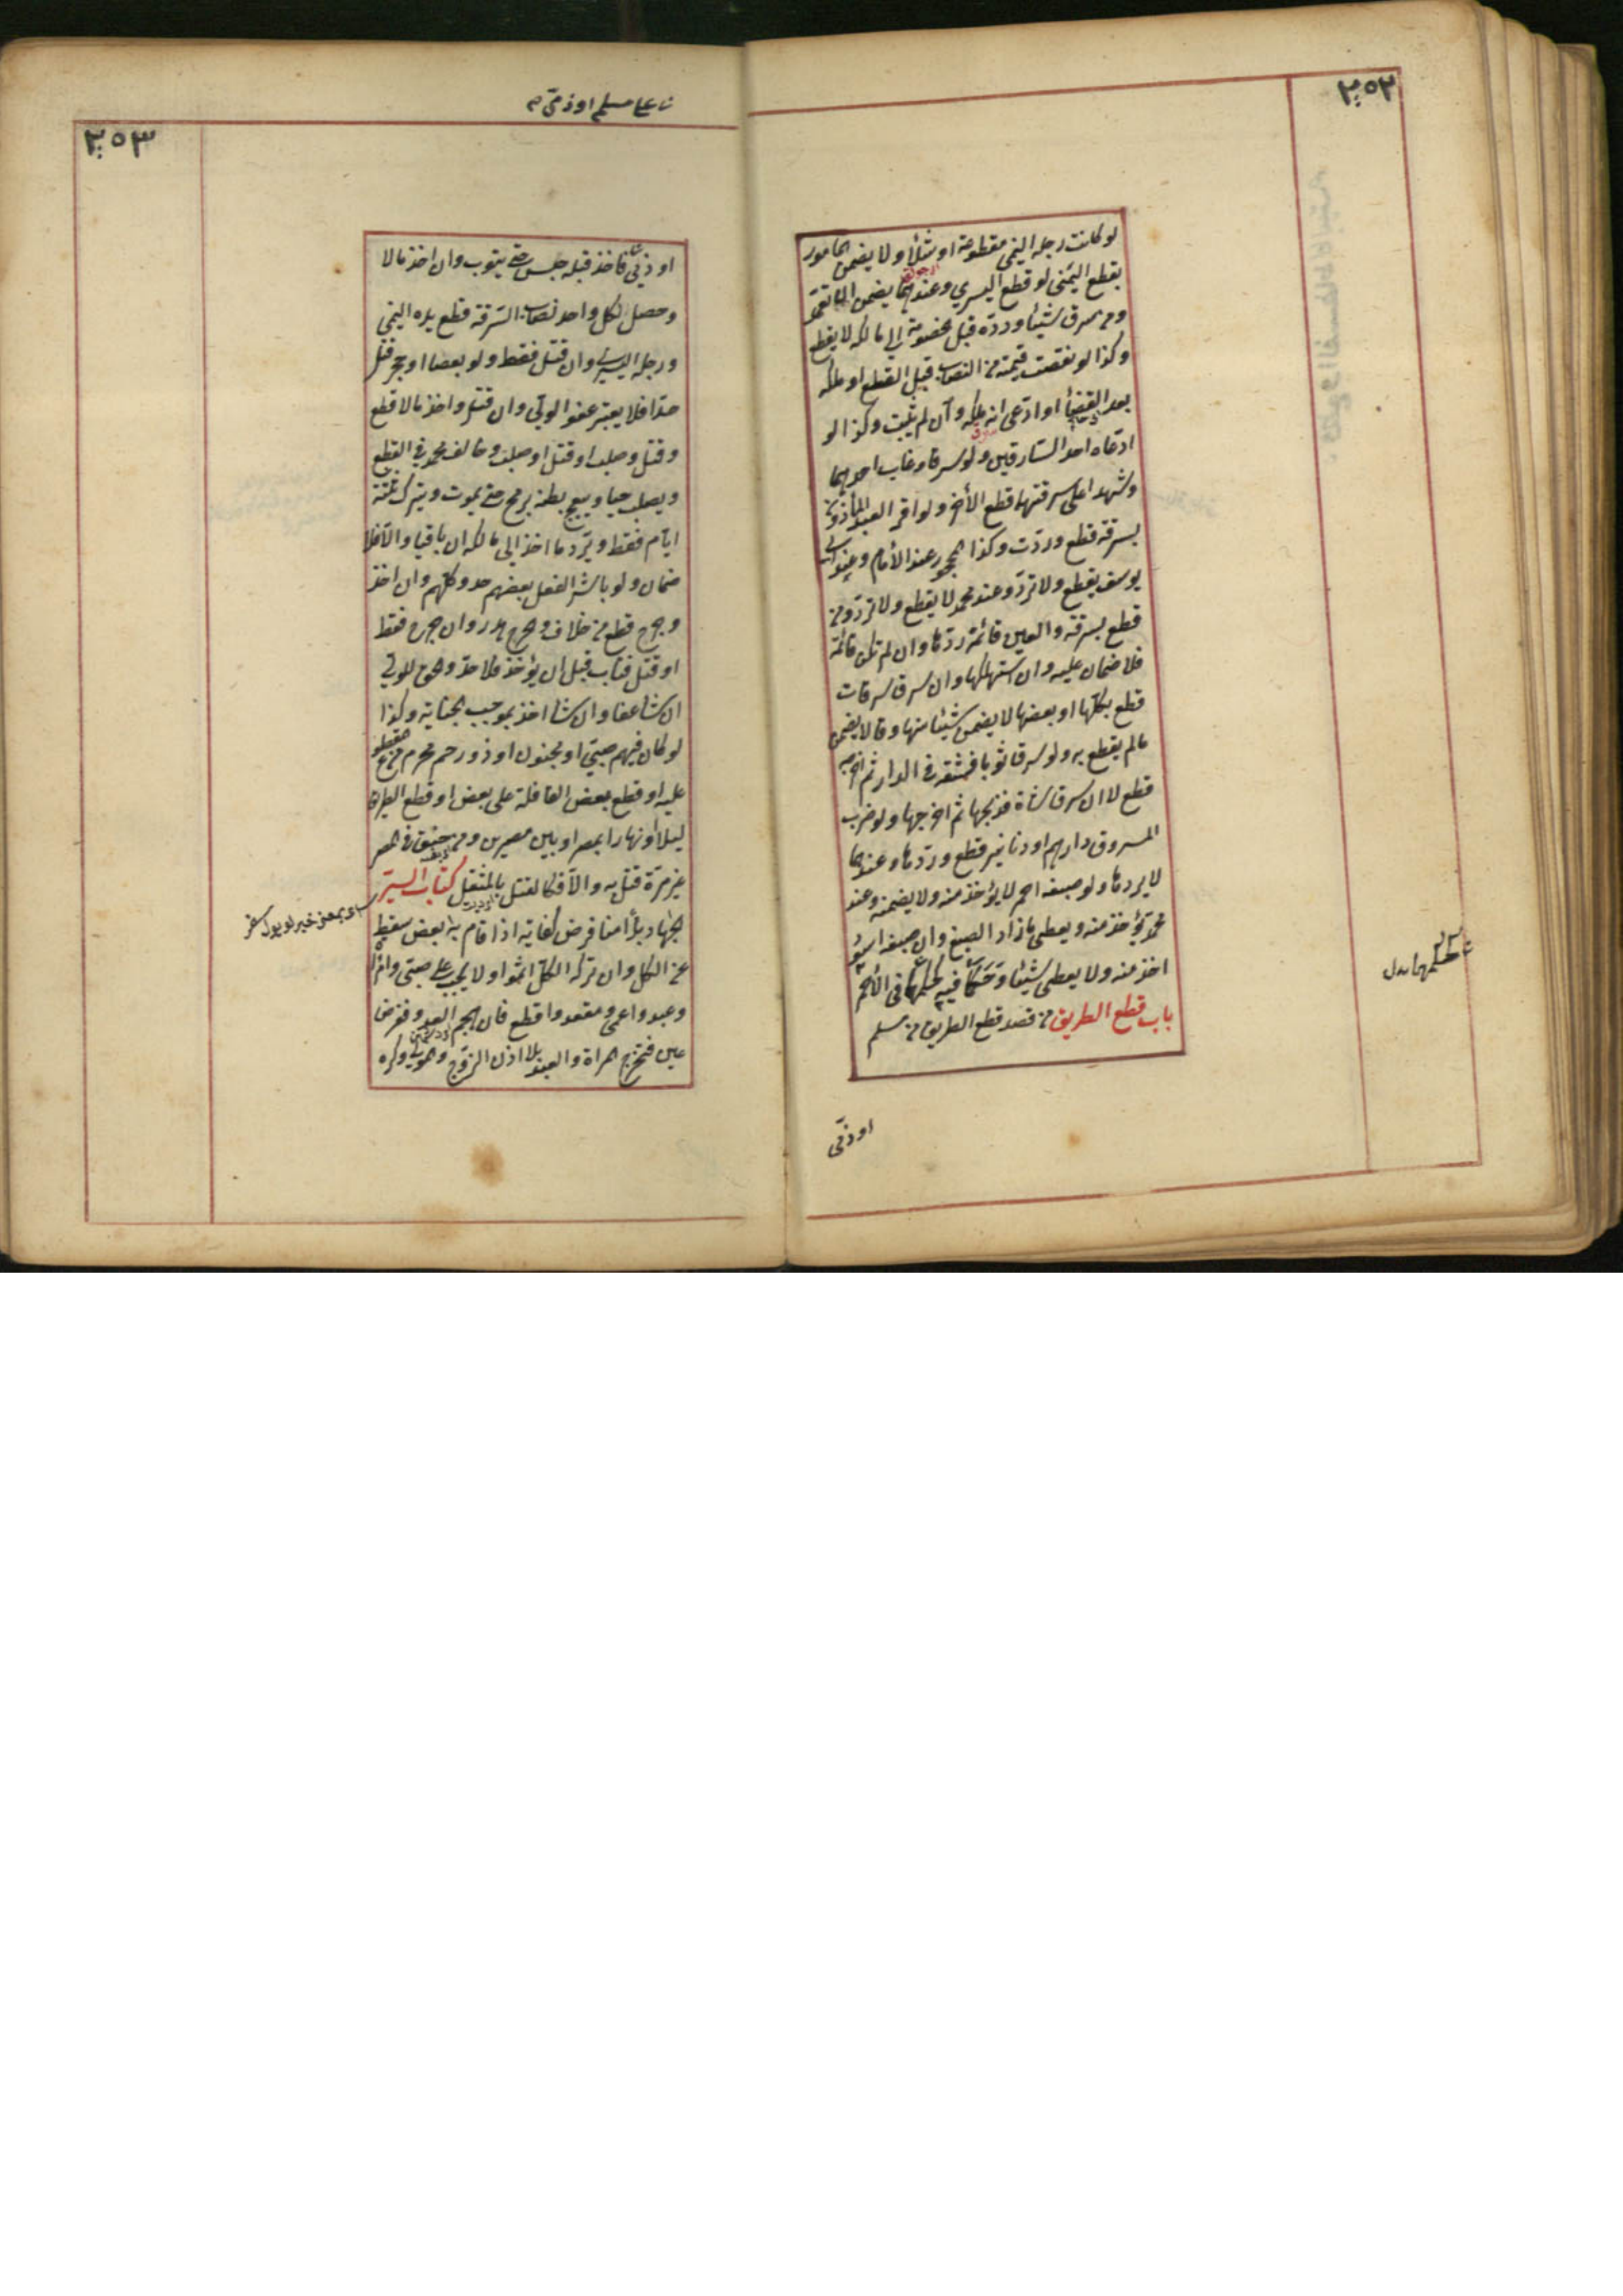 ٢٥٢
لو كانت رجله اليمنى مقطوعة او شلأ ولا يضمن المامور
بقطع اليمنى لو قطع اليسرى وعندهما يضمن ان تعمد
ومن سرق شيئا وردّه قبل الخصومة الى مالكه لا يقطع
وكذا لو نقصت قيمته من النصاب قبل القطع او ملكه
بعد القضأ او ادّعى انه ملكه وان لم يثبت وكذا لو
ادعاه احد السارقين ولو سرقا وغاب احدهما
وشهدا على سرقتهما قطع الأخر ولو اقر العبد المأذون
بسرقة قطع وردّت وكذا المحجور عند الأمام وعند ابى
يوسف يقطع ولا تردّ وعند محمد لا يقطع ولا تردّ ومن
قطع بسرقة والعين قائمة ردّها وان لم تكن قائمة
فلا ضمان عليه وان استهلكها وان سرق سرقات
قطع بكلّها او بعضها لا يضمن شيئا منها وقالا يضمن
مالم يقطع به ولو سرق ثوبا فشقّه فى الدار ثم اخرجه
قطع لا ان سرق شاة فذبحها ثم اخرجها ولو ضرب
المسروق دارهم او دنانير قطع وردّها وعندهما
لا يردها ولو صبغه احمر لا يؤخذ منه ولا يضمنه وعند
محمد يؤخذ منه ويعطى ما زاد الصبغ وان صبغه اسود
اخذ منه ولا يعطى شيئا وحكما فيه كحكمها فى الأحمر
باب قطع الطريق من قصد قطع الطريق من مسلم
او ذمّى
على مسلم او ذمّى
٢٥٣
او ذمّى فاخذ قبله حبس حتى يتوب وان اخذ مالا
وحصل لكل واحد نصاب السرقة قطع يده اليمنى
ورجله اليسرى وان قتل فقط ولو بعصا او حجر قتل
حدّا فلا يعتبر عفو الولّى وان قتل واخذ مالا قطع
وقتل وصلب او قتل او صلب وخالف محمد فى القطع
ويصلب حيا ويبعج بطنه برمح حتى يموت ويترك ثلثة
ايّام فقط ويردّ ما اخذ الى مالكه ان باقيا والّا فلا
ضمان ولو باشر الفعل بعضهم حدوا كلّهم وان اخذ
وجرح قطع من خلاف والجرح هدر وان جرح فقط
او قتل فتاب قبل ان يؤخذ فلا حدّ والحق للولى
ان شأ عفا وان شأ اخذ بموجب الجناية وكذا
لو كان فيهم صبىّ او مجنون او ذو رحم محرم من المقطوع
عليه او قطع بعض القافلة على بعض او قطع الطريق
ليلا او نهارا بمصر او بين مصرين ومن خنق فى المصر
غير مرّة قتل به والّا فكالقتل بالمثقل كتاب السير
الجهاد بدأ منا فرض كفاية اذا قام به بعض سقط
عن الكل وان تركه الكلّ اثموا ولا يجب على صبىّ وامرأة
وعبد واعمى ومقعد واقطع فان هجم العدو ففرض
عين فتخرج المرأة والعبد بلا اذن الزوج والمولى وكره